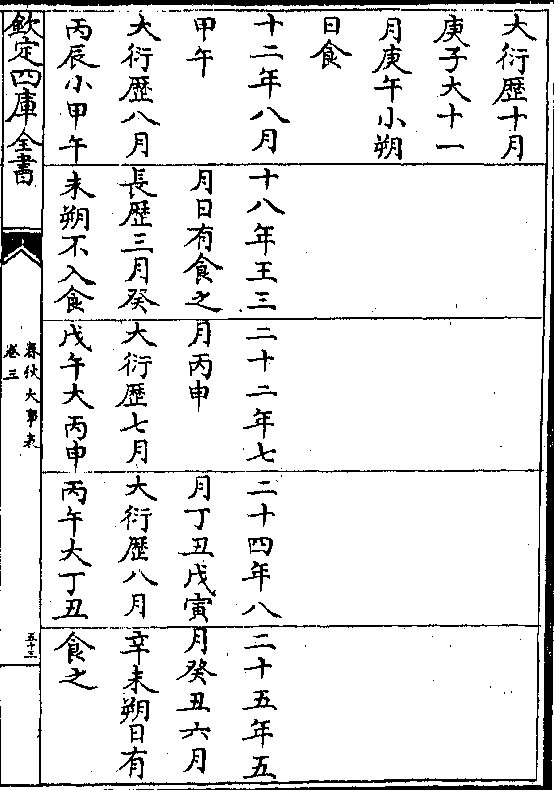 大衍歴十月
庚子大十一
月庚午小朔
日食
十二年八月
甲午
大衍歴八月
丙辰小甲午
十八年王三
月日有食之
長歴三月癸
未朔不入食
二十二年七
月丙申
大衍歴七月
戊午大丙申
二十四年八
月丁丑戊寅
大衍歴八月
丙午大丁丑
二十五年五
月癸丑六月
辛未朔日有
食之
欽定四庫全書
春秋大事表
卷三
五十三